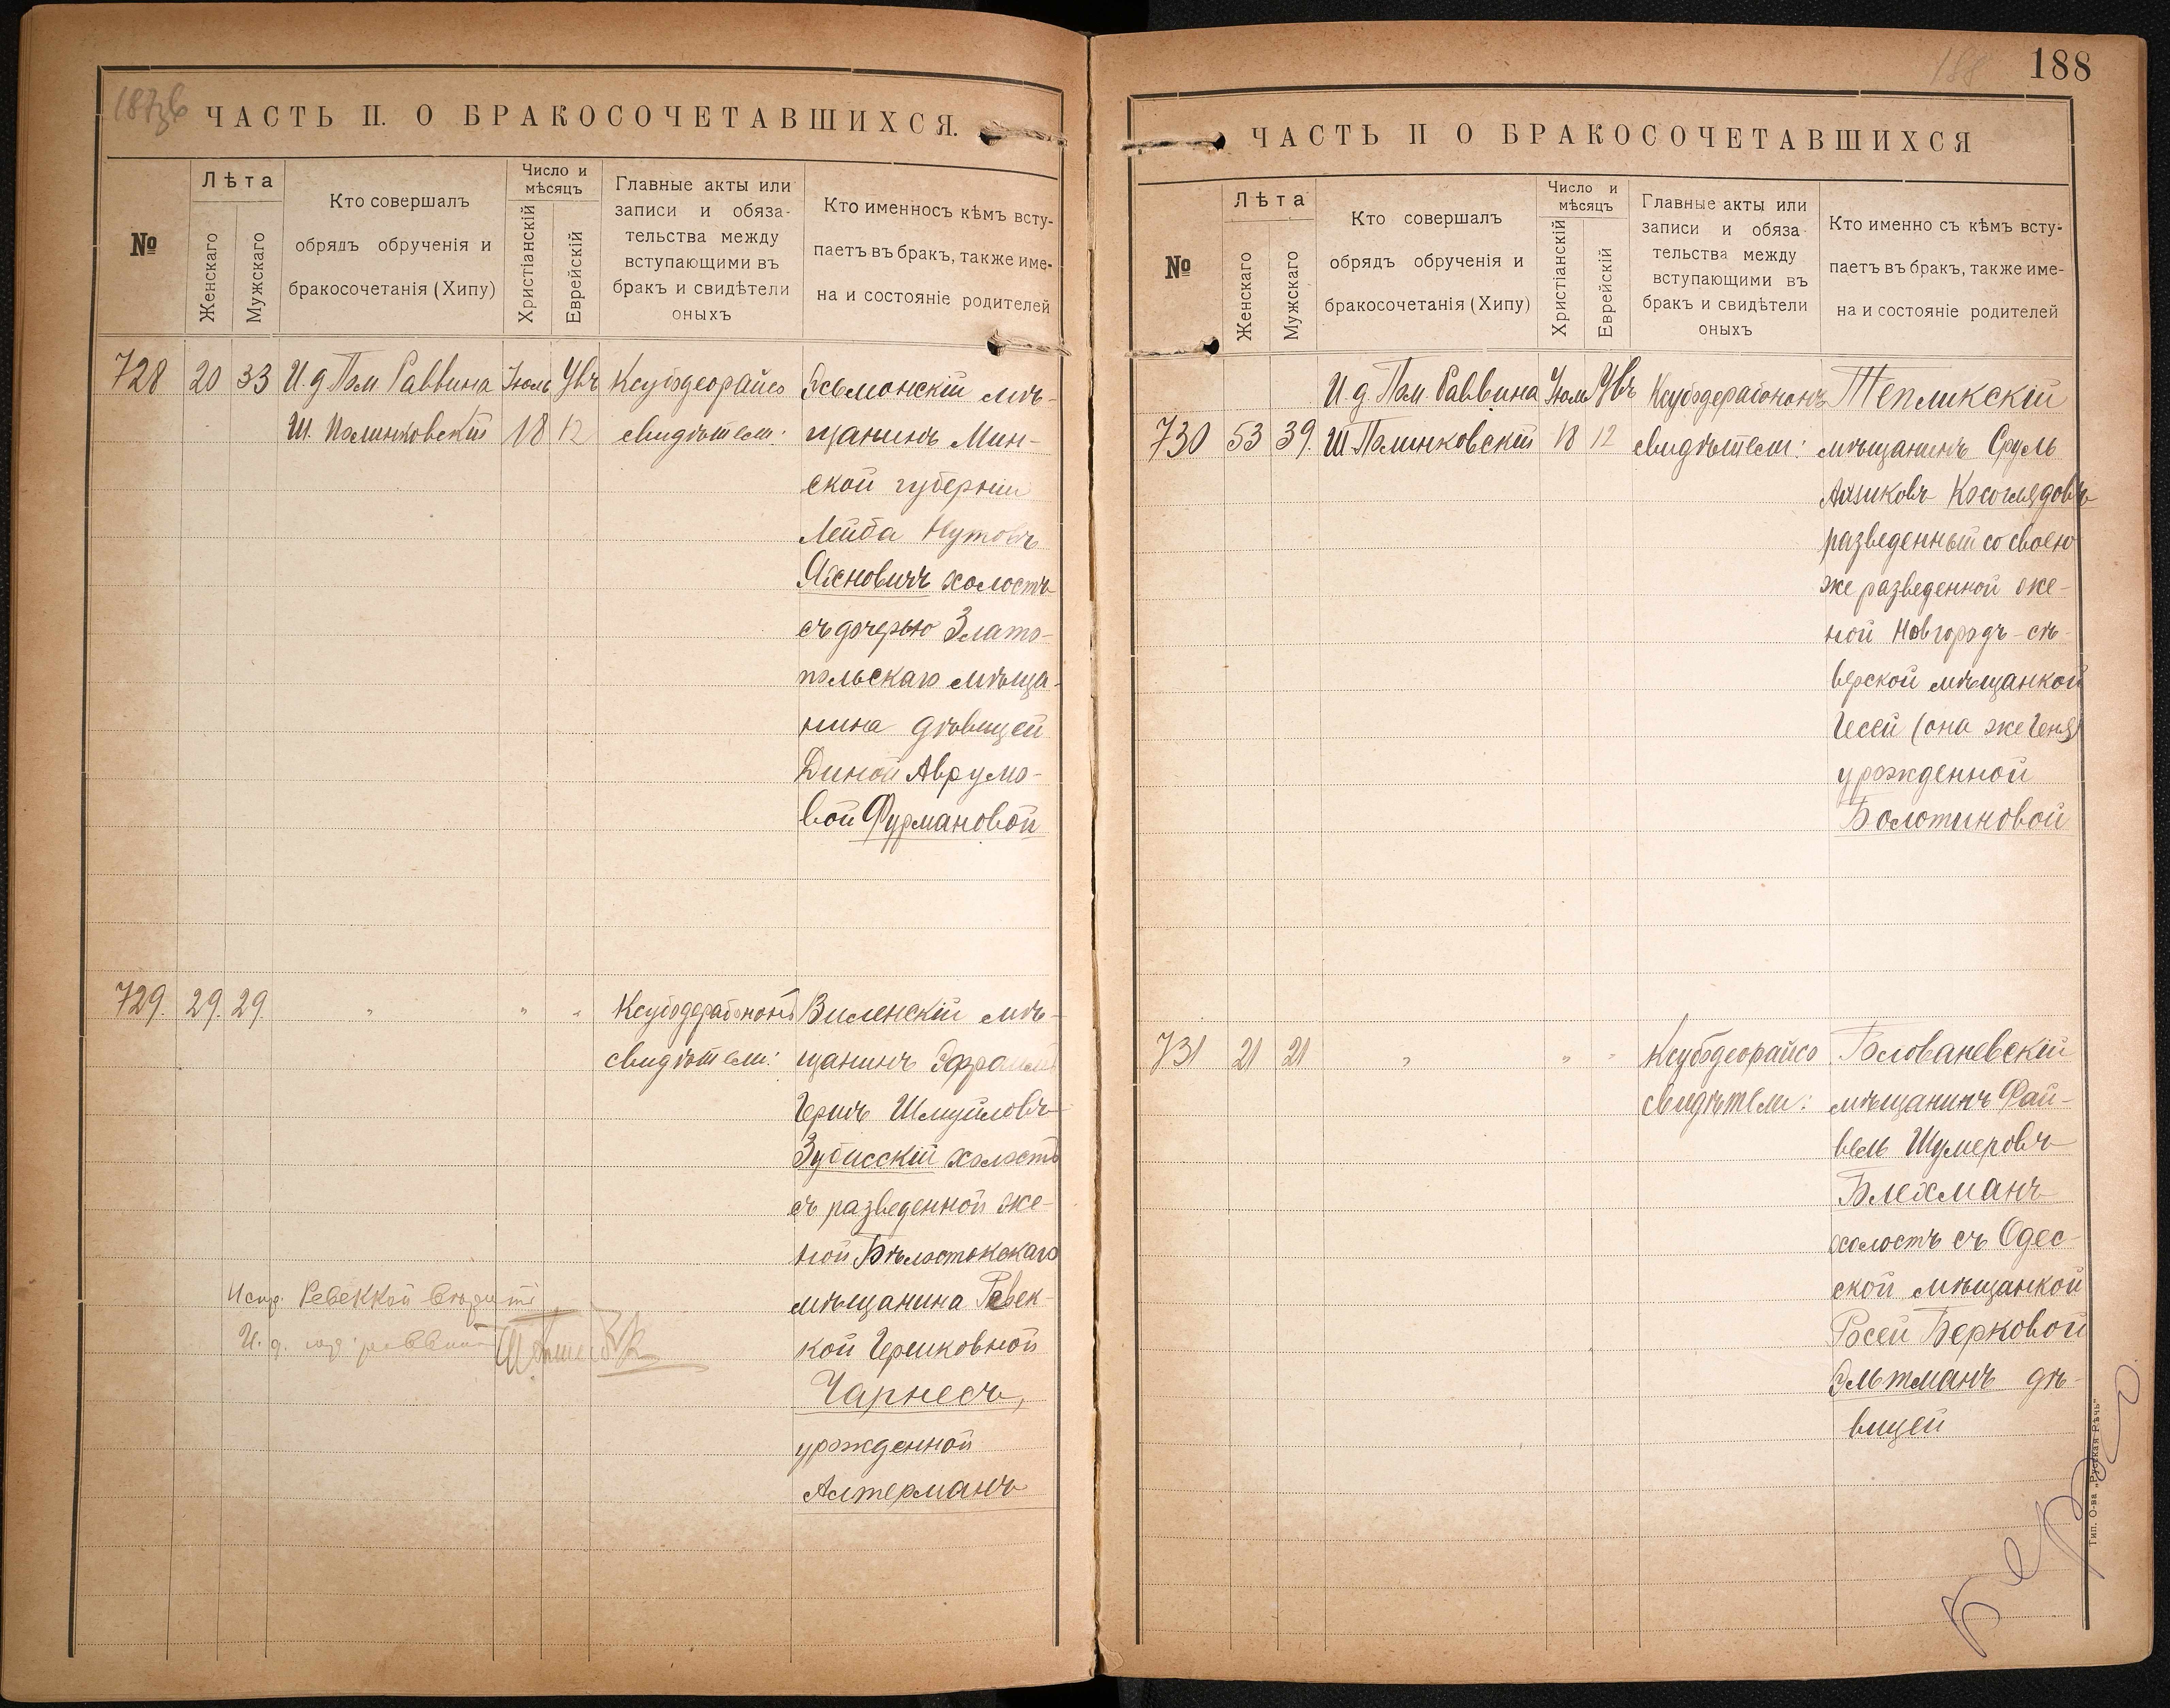 ЧАСТЬ II. О БРАКОСОЧЕТАВШИХСЯ.
№
Лѣта
Женскаго
Мужскаго
Кто совершалъ
обрядъ обрученія и
бракосочетанія (Хипу)
Число и
мѣсяцъ
Христіанскій
Еврейскій
Главные акты или
записи и обяза-
тельства между
вступающими въ
бракъ и свидѣтели
оныхъ
Кто именносъ кѣмъ всту-
паетъ въ бракъ, также име-
на и состояніе родителей
728 20 33 И. д. Пом. Раввина Іюль
Ш. Полинковскій 18 12 свидѣтели:
мѣ-
щанинъ Мин-
ской губерніи
Лейба Нутовъ
Яхновичъ холостъ
съ дочерью Злато-
польскаго мѣща-
нина дѣвицей
Диной Аврумо-
вой Фурмановой
729. 29. 29 " " "
свидѣтели:
Виленскій мѣ-
щанинъ
Гершъ Шмуйловъ
Зубисскій холостъ
съ разведенной же-
ной Бѣлостокскаго
мѣщанина Ревек-
кой Гершковной
Чарнесъ,
урожденной
Алтерманъ
Испр. Ревеккой
И. д.
188
ЧАСТЬ II О БРАКОСОЧЕТАВШИХСЯ
№
Лѣта
Женскаго
Мужскаго
Кто совершалъ
обрядъ обрученія и
бракосочетанія (Хипу)
Число и
мѣсяцъ
Христіанскій
Еврейскій
Главные акты или
записи и обяза-
тельства между
вступающими въ
бракъ и свидѣтели
оныхъ
Кто именно съ кѣмъ всту-
паетъ въ бракъ, также име-
на и состояніе родителей
И. д. Пом. Раввина Іюль
730 53 39. Ш. Полинковскій 18 12 свидѣтели:
Тепликскій
мѣщанинъ Сруль
Айзиковъ Косоглядовъ
разведенный со своею
же разведенной же-
ной Новгородъ-сѣ-
верской мѣщанкой
Гесей (она же Геня)
урожденной
Болотиновой
731 21 21 " " "
свидѣтели:
Голованевскій
мѣщанинъ Фай-
вель Шумеровъ
Блехманъ
холостъ съ Одес-
ской мѣщанкой
Росей Берковой
Эльтманъ дѣ-
вицей
Тип. О-ва „Русская Рѣчь“